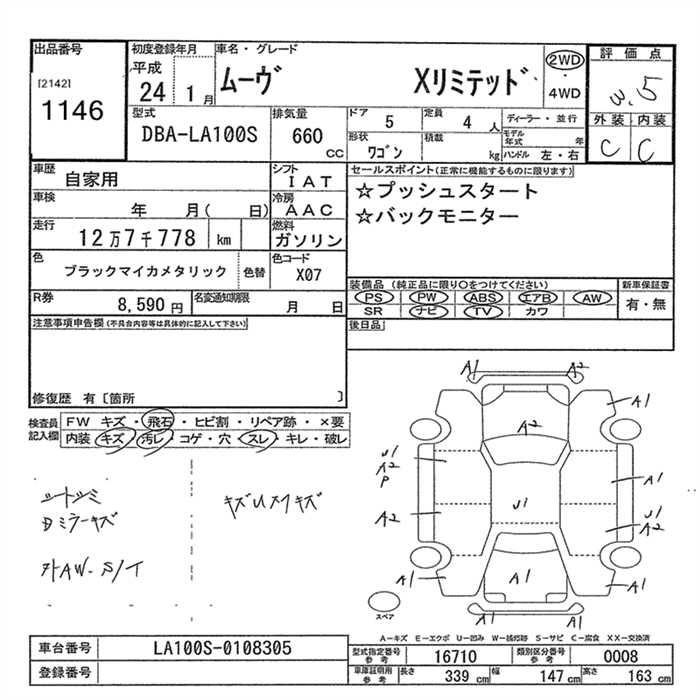 出品番号
[2142]
1146
初度登録年月
平成
24 1月
車名・グレード
ムーヴ Xリミテッド
2WD
・
4WD
評価点
3.5
外装 内装
C C
型式
DBA-LA100S
排気量
660
CC
ドア
5
定員
4 人
形状
ワゴン
積載
kg
ディーラー・並行
モデル年式 年
ハンドル 左・右
車歴
自家用
シフト
IAT
車検
年 月( 日)
冷房
AAC
走行
12万7千778 km
燃料
ガソリン
色
ブラックマイカメタリック
色替
色コード
X07
R券
8,590円
名変通知期限
月 日
セールスポイント(正常に機能するものに限ります)
☆プッシュスタート
☆バックモニター
装備品 (純正品に限り○をつけてください)
PS PW ABS エアB AW
SR ナビ TV カワ
新車保証書
有・無
後日品
注意事項申告欄(不具合内容等は具体的に記入して下さい)
修復歴 有〔箇所 〕
検査員記入欄
FW キズ・飛石・ヒビ割・リペア跡・×要
内装 キズ・汚レ・コゲ・穴・スレ・キレ・破レ
シートシミ
Dミラーキズ
キズUスリキズ
カAW-S/T
A1 A2
A1 A1
A2
U1
A2
P
A1
A2
U1
U1
A2
A1 A1 A1
A1 A1
スペア
A-キズ E-エクボ U-凹み W-補修跡 S-サビ C-腐食 XX-交換済
車台番号
LA100S-0108305
登録番号
型式指定番号
参考
16710
類別区分番号
参考
0008
車庫証明用
参考
長さ
339 cm
幅
147 cm
高さ
163 cm